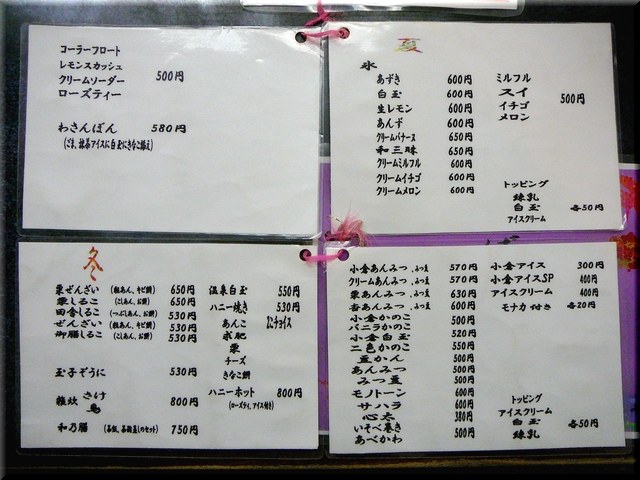 コーラーフロート
レモンスカッシュ
クリームソーダー 500円
ローズティー
わさんぼん 580円
(ごま、抹茶アイスに白玉にきなこ添え)
夏
氷
あずき 600円
白玉 600円
生レモン 600円
あんず 600円
クリームバナーヌ 650円
和三味 650円
クリームミルフル 600円
クリームイチゴ 600円
クリームメロン 600円
ミルフル
スイ
イチゴ 500円
メロン
トッピング
練乳
白玉 各50円
アイスクリーム
冬
栗ぜんざい (粒あん、キビ餅) 650円
栗しるこ (こしあん、お餅) 650円
田舎しるこ (つぶしあん、お餅) 530円
ぜんざい (粒あん、キビ餅) 530円
御膳しるこ (こしあん、お餅) 530円
玉子ぞうに 530円
雑炊 さけ 800円
鳥
和乃膳 750円
温泉白玉 550円
ハニー焼き 530円
あんこ
求肥
栗
チーズ
きなこ餅
ハニーホット 800円
(ローズティ、アイス付き)
小倉あんみつ 570円
クリームあんみつ 570円
栗あんみつ 630円
杏あんみつ 600円
小倉かのこ 500円
バニラかのこ 500円
小倉白玉 520円
二色かのこ 550円
豆かん 500円
あんみつ 500円
みつ豆 500円
モノトーン 600円
サハラ 600円
心太 380円
いそべ巻き
あべかわ 500円
小倉アイス 300円
小倉アイスSP 400円
アイスクリーム 400円
モナカ付き 各20円
トッピング
アイスクリーム
白玉 各50円
練乳